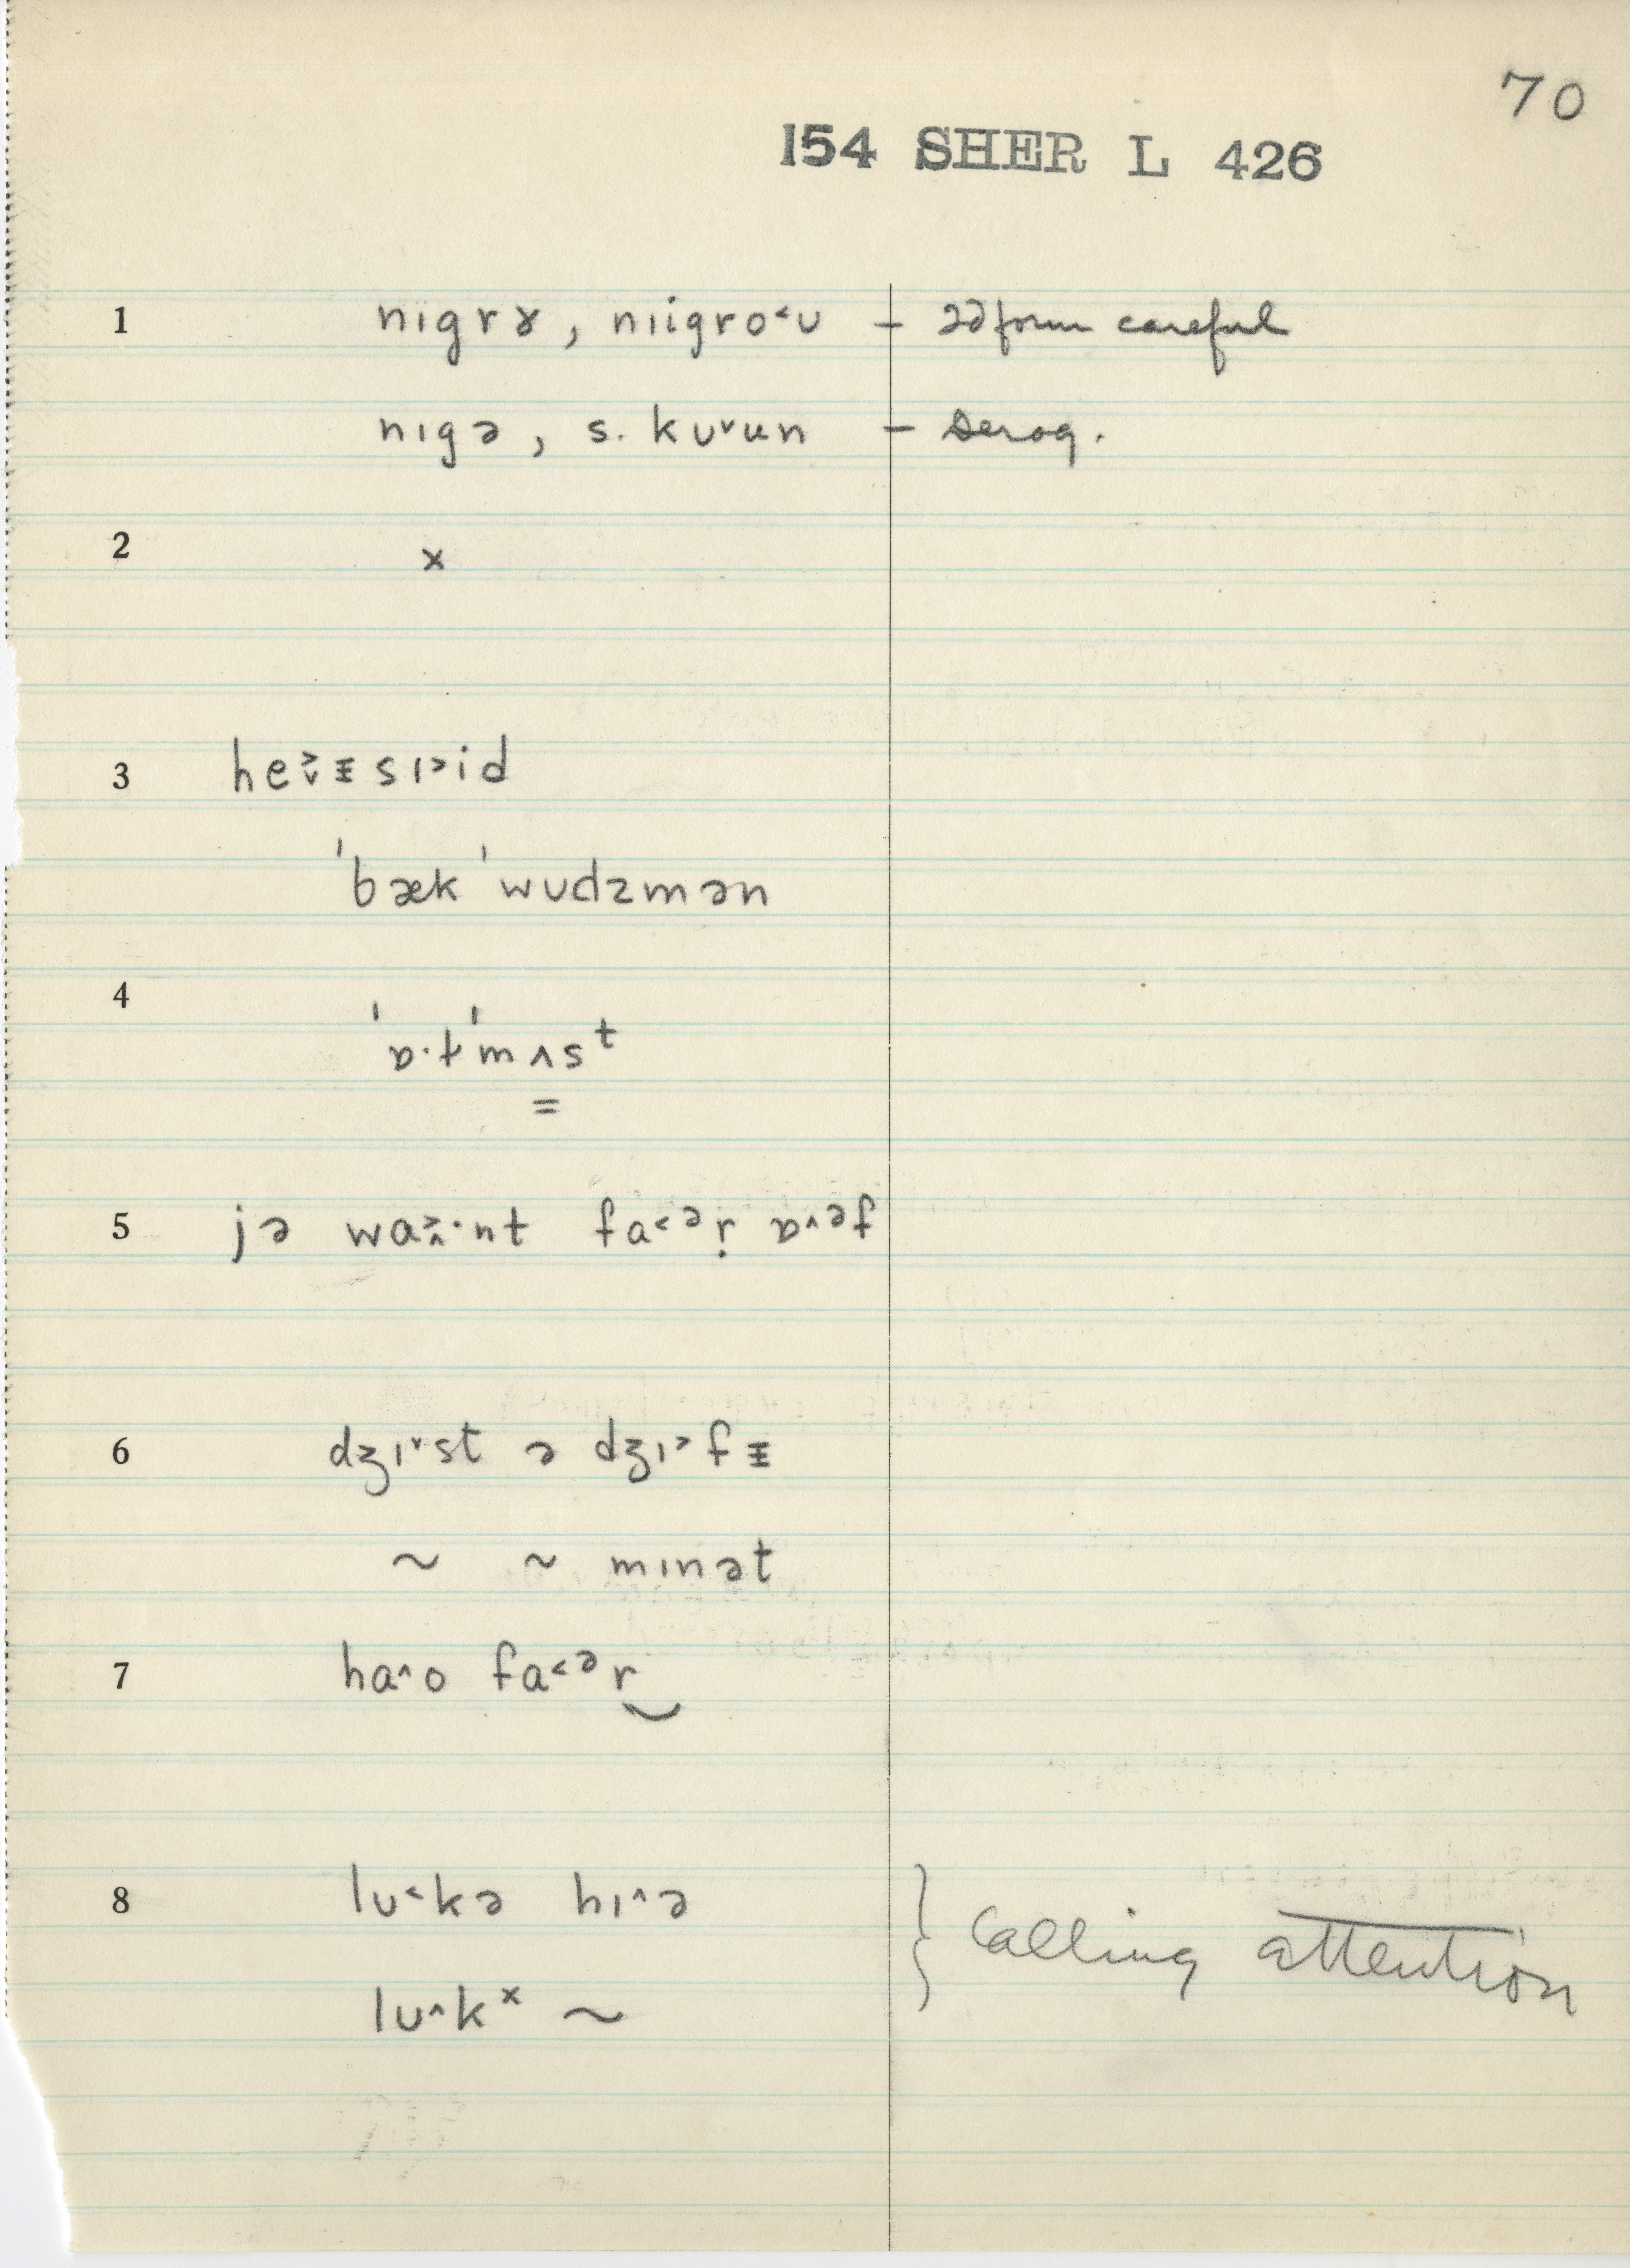 70
154 SHER L 426
1 nɪgrɤ, nɪigro˂ʊ – 2d form careful
nɪgə, s. kʊ˅un – derog.
2 x
3 he˃˅ᵻsɪ˃id
ˈbækˈwʊdzmən
4 ˈɒ·tˈmʌsᵗ
5 jə wa˃˄·nt fa˂ᵊṛ ɒ˄ᵊf
6 dʒɪ˅st ə dʒɪ˃fᵻ
~ ~ mɪnət
7 ha˄o fa˂ᵊr‿
8 lʊ˂kə hɪ˄ə } Calling attention
lʊ˄kˣ ~